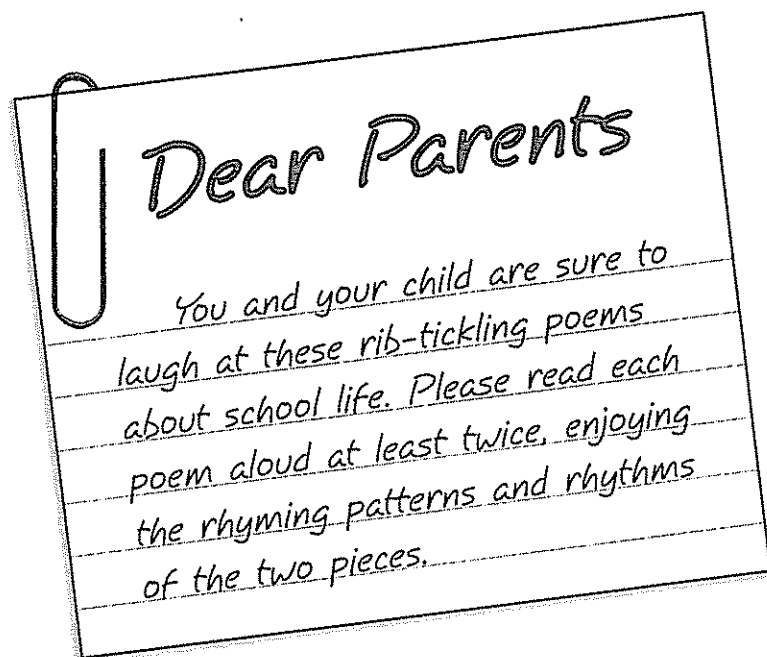 Dear Parents
You and your child are sure to
laugh at these rib-tickling poems
about school life. Please read each
poem aloud at least twice, enjoying
the rhyming patterns and rhythms
of the two pieces.